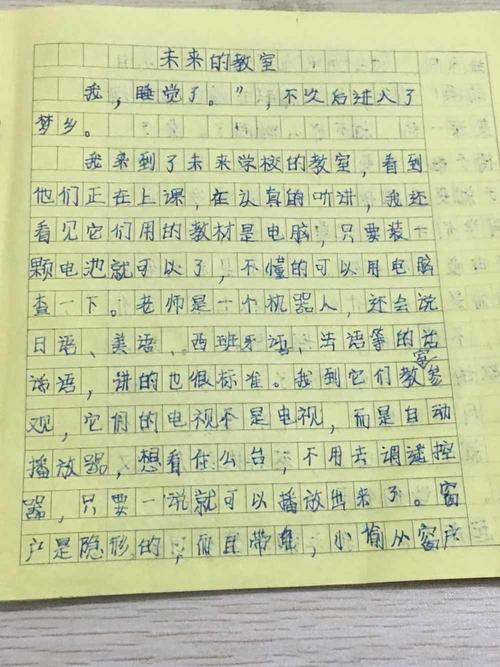 未来的教室
我，睡觉了。”，不久后进入了
梦乡。
我来到了未来学校的教室，看到
他们正在上课，在认真的听讲，我还
看见它们用的教材是电脑，只要装一
颗电池就可以了，不懂的可以用电脑
查一下。老师是一个机器人，还会说
日语、美语、西班牙语、法语等的话
语，讲的也很标准。我到它们教室参
观，它们的电视不是电视，而是自动
播放器，想看什么台，不用去调遥控
器，只要一说就可以播放出来了。窗
户是隐形的，而且带电，小偷从窗户